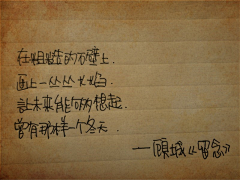 在粗糙的石壁上.
画上一丛丛火焰.
让未来能够想起.
曾有那样一个冬天.
——顾城《留念》